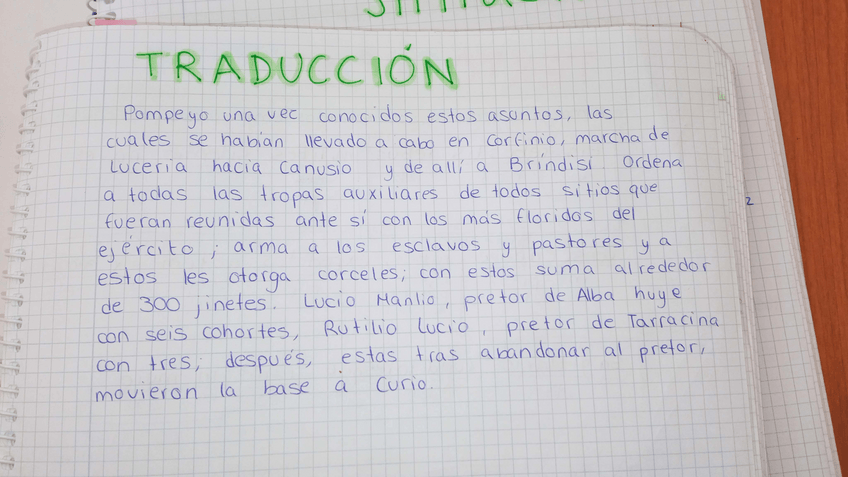 TRADUCCIÓN
Pompeyo una vec conocidos estos asuntos, las
cuales se habían llevado a cabo en Corfinio, marcha de
Luceria hacia Canusio y de allí a Bríndisi Ordena
a todas las tropas auxiliares de todos sitios que
fueran reunidas ante sí con los más floridos del
ejército; arma a los esclavos y pastores y a
estos les otorga corceles; con estos suma alrededor
de 300 jinetes. Lucio Manlio, pretor de Alba huye
con seis cohortes, Rutilio Lucio, pretor de Tarracina
con tres; después, estas tras abandonar al pretor,
movieron la base a Curio.
2